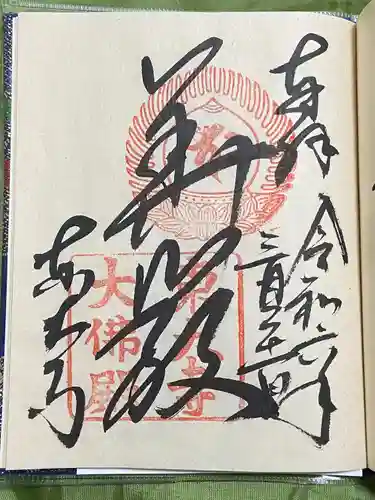 奉拝
令和六年
三月二十一日
華嚴
東大寺
東大寺
大佛殿